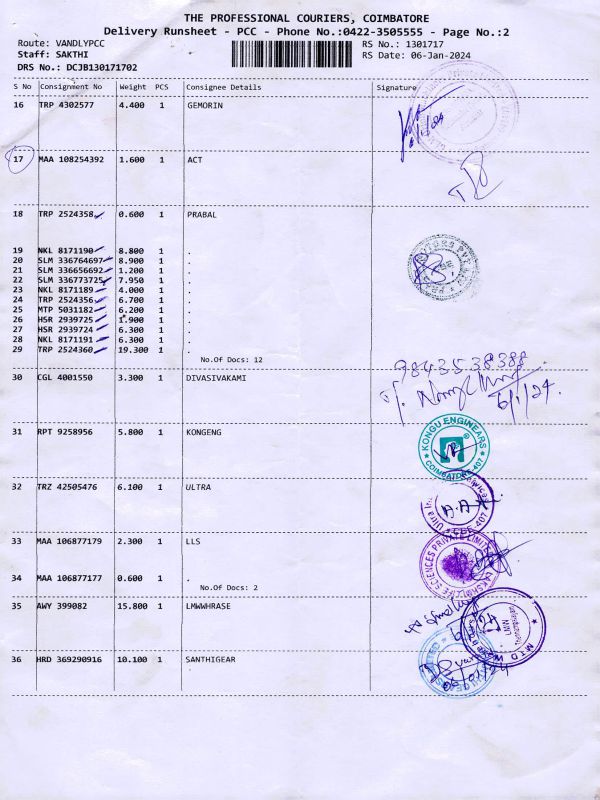 THE PROFESSIONAL COURIERS, COIMBATORE
Delivery Runsheet - PCC - Phone No.:0422-3505555 - Page No.:2
Route: VANDLYPCC RS No.: 1301717
Staff: SAKTHI RS Date: 06-Jan-2024
DRS No.: DCJB130171702
S No Consignment No Weight PCS Consignee Details Signature
16 TRP 4302577 4.400 1 GEMORIN
17 MAA 108254392 1.600 1 ACT
18 TRP 2524358 0.600 1 PRABAL
19 NKL 8171190 8.800 1 .
20 SLM 336764697 8.900 1 .
21 SLM 336656692 1.200 1 .
22 SLM 336773725 7.950 1 .
23 NKL 8171189 4.000 1 .
24 TRP 2524356 6.700 1 .
25 MTP 5031182 6.200 1 .
26 HSR 2939725 1.900 1 .
27 HSR 2939724 6.300 1 .
28 NKL 8171191 6.300 1 .
29 TRP 2524360 19.300 1 .
No.Of Docs: 12
9843538388
30 CGL 4001550 3.300 1 DIVASIVAKAMI
6/1/24.
31 RPT 9258956 5.800 1 KONGENG
KONGU ENGINEARS
COIMBATORE-407
32 TRZ 42505476 6.100 1 ULTRA
33 MAA 106877179 2.300 1 LLS
34 MAA 106877177 0.600 1 .
No.Of Docs: 2
35 AWY 399082 15.800 1 LMWWHRASE
LMW
36 HRD 369290916 10.100 1 SANTHIGEAR
.